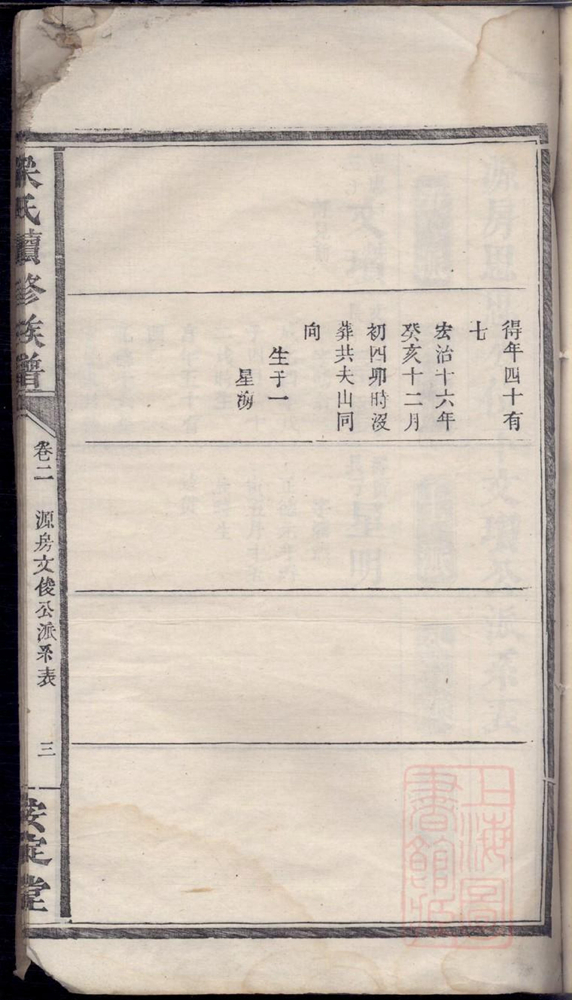 得年四十有
七
宏治十六年
癸亥十二月
初四卯時沒
葬共夫山同
向
生子一
星海
梁氏續修族譜
卷二
源房文俊公派系表
三
安定堂
上海圖
書館藏